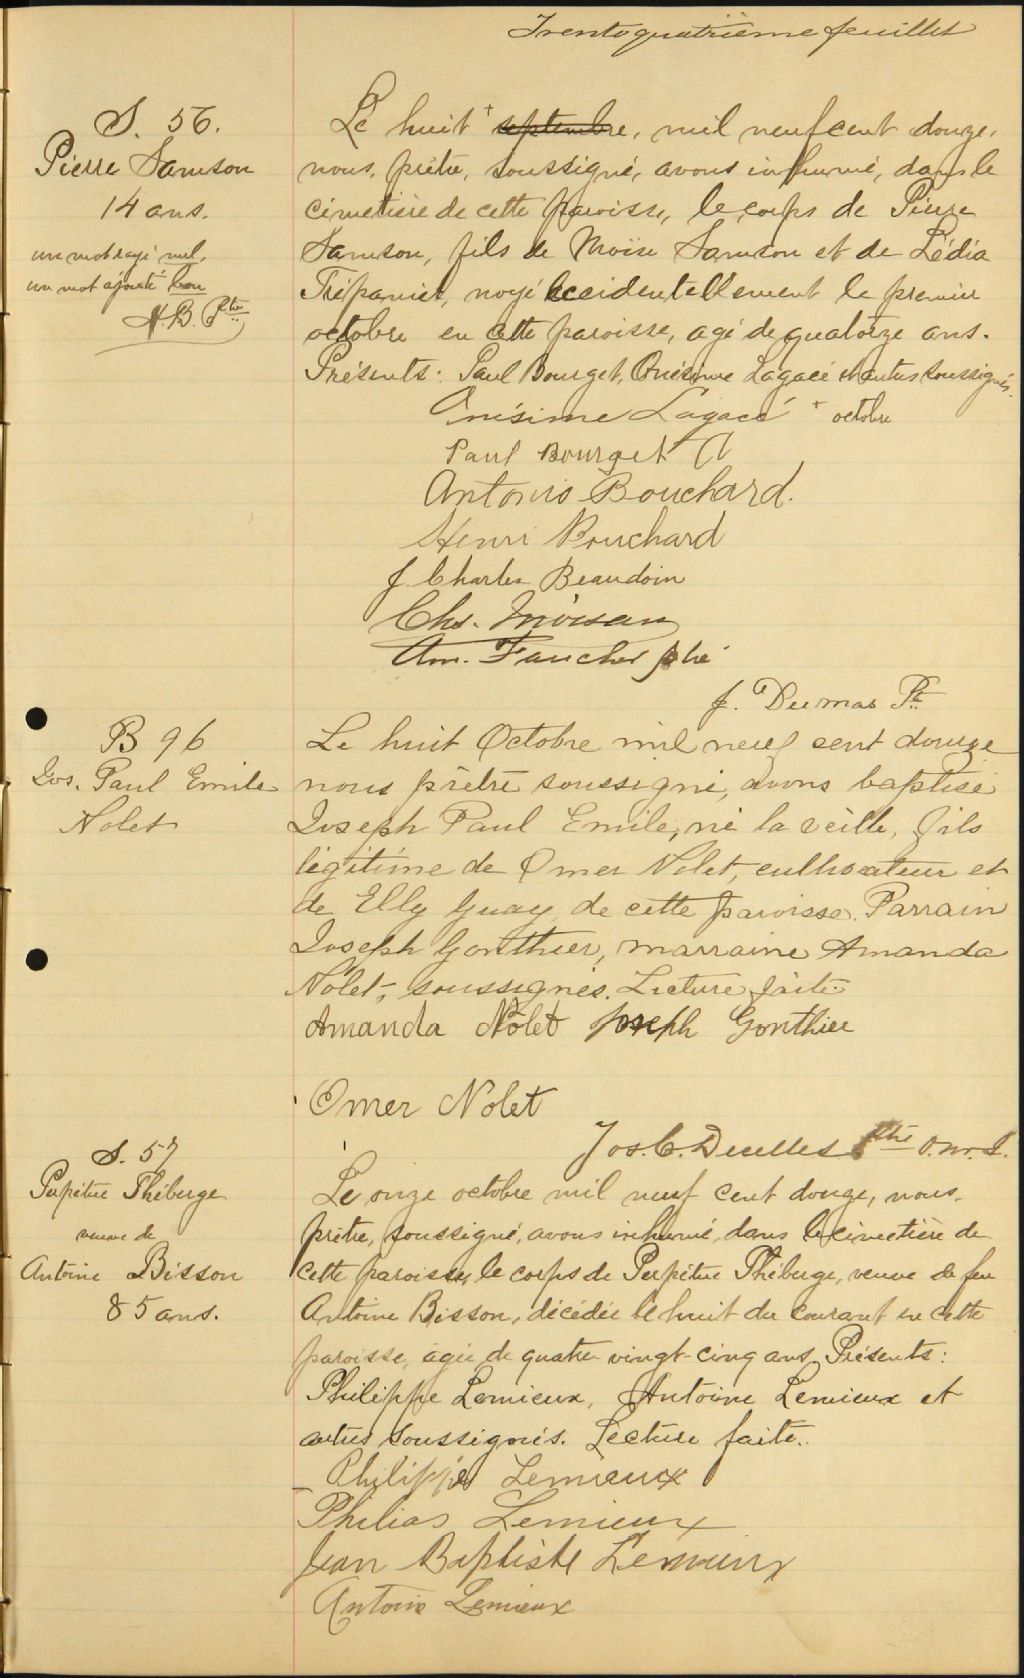 Trentequatrième feuillet
S. 56.
Pierre Samson
14 ans.
un mot rayé nul,
un mot ajouté bon
Le huit + septembre, mil neuf cent douze,
nous, prêtre, soussigné, avons inhumé, dans le
cimetière de cette paroisse, le corps de Pierre
Samson, fils de Moïse Samson et de Lédia
Trépanier, noyé accidentellement le premier
octobre en cette paroisse, agé de quatorze ans.
Présents: Paul Bourget, Onésime Lagacé et autres soussignés.
Onésime Lagacé + octobre
Paul Bourget
Antonio Bouchard.
Henri Bouchard
J. Charles Beaudoin
Chs. Moisan
Am. Faucher ptre
J. Dumas Pt
B 96
Jos. Paul Emile
Nolet
Le huit Octobre mil neuf cent douze
nous prêtre soussigné, avons baptisé
Joseph Paul Emile, né la veille, fils
légitime de Omer Nolet, cultivateur et
de Elly Guay de cette paroisse. Parrain
Joseph Gonthier, marraine Amanda
Nolet, soussignés. Lecture faite.
Amanda Nolet Joseph Gonthier
Omer Nolet
Jos. C. Decelles Ptre O.M.I.
S. 57
Perpétue Théberge
veuve de
Antoine Bisson
85 ans.
Le onze octobre mil neuf cent douze, nous,
prêtre, soussigné, avons inhumé, dans le cimetière de
cette paroisse, le corps de Perpétue Théberge, veuve de feu
Antoine Bisson, décédée le huit du courant en cette
paroisse, agée de quatre-vingt-cinq ans. Présents:
Philippe Lemieux, Antoine Lemieux et
autres soussignés. Lecture faite.
Philippe Lemieux
Philias Lemieux
Jean Baptiste Lemieux
Antoine Lemieux